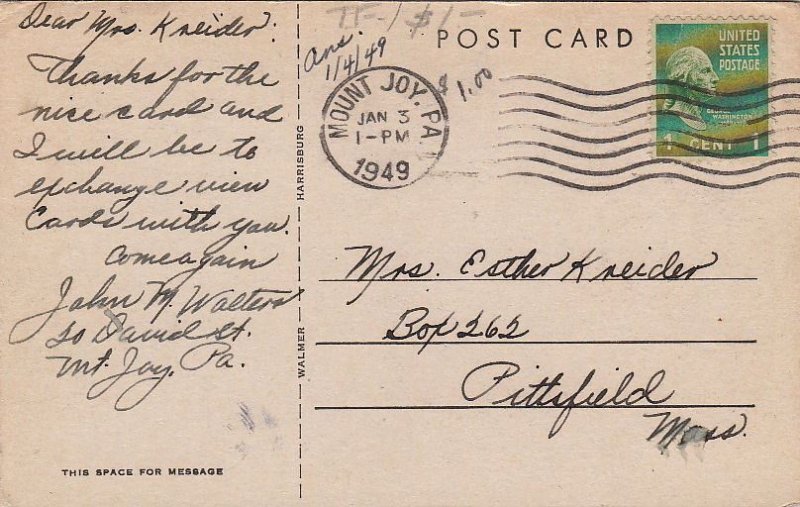 Dear Mrs. Kneider:
Thanks for the
nice card and
I will be to
exchange view
Cards with you.
Come again
John M. Walters
So David St.
Mt. Joy, Pa.
THIS SPACE FOR MESSAGE
WALMER — HARRISBURG
TF-1 $1-
Ans.
1/4/49
$1.00
POST CARD
MOUNT JOY, PA.
JAN 3
1-PM
1949
UNITED
STATES
POSTAGE
GEORGE
WASHINGTON
1 CENT 1
Mrs. Esther Kneider
Box 262
Pittsfield
Mass.